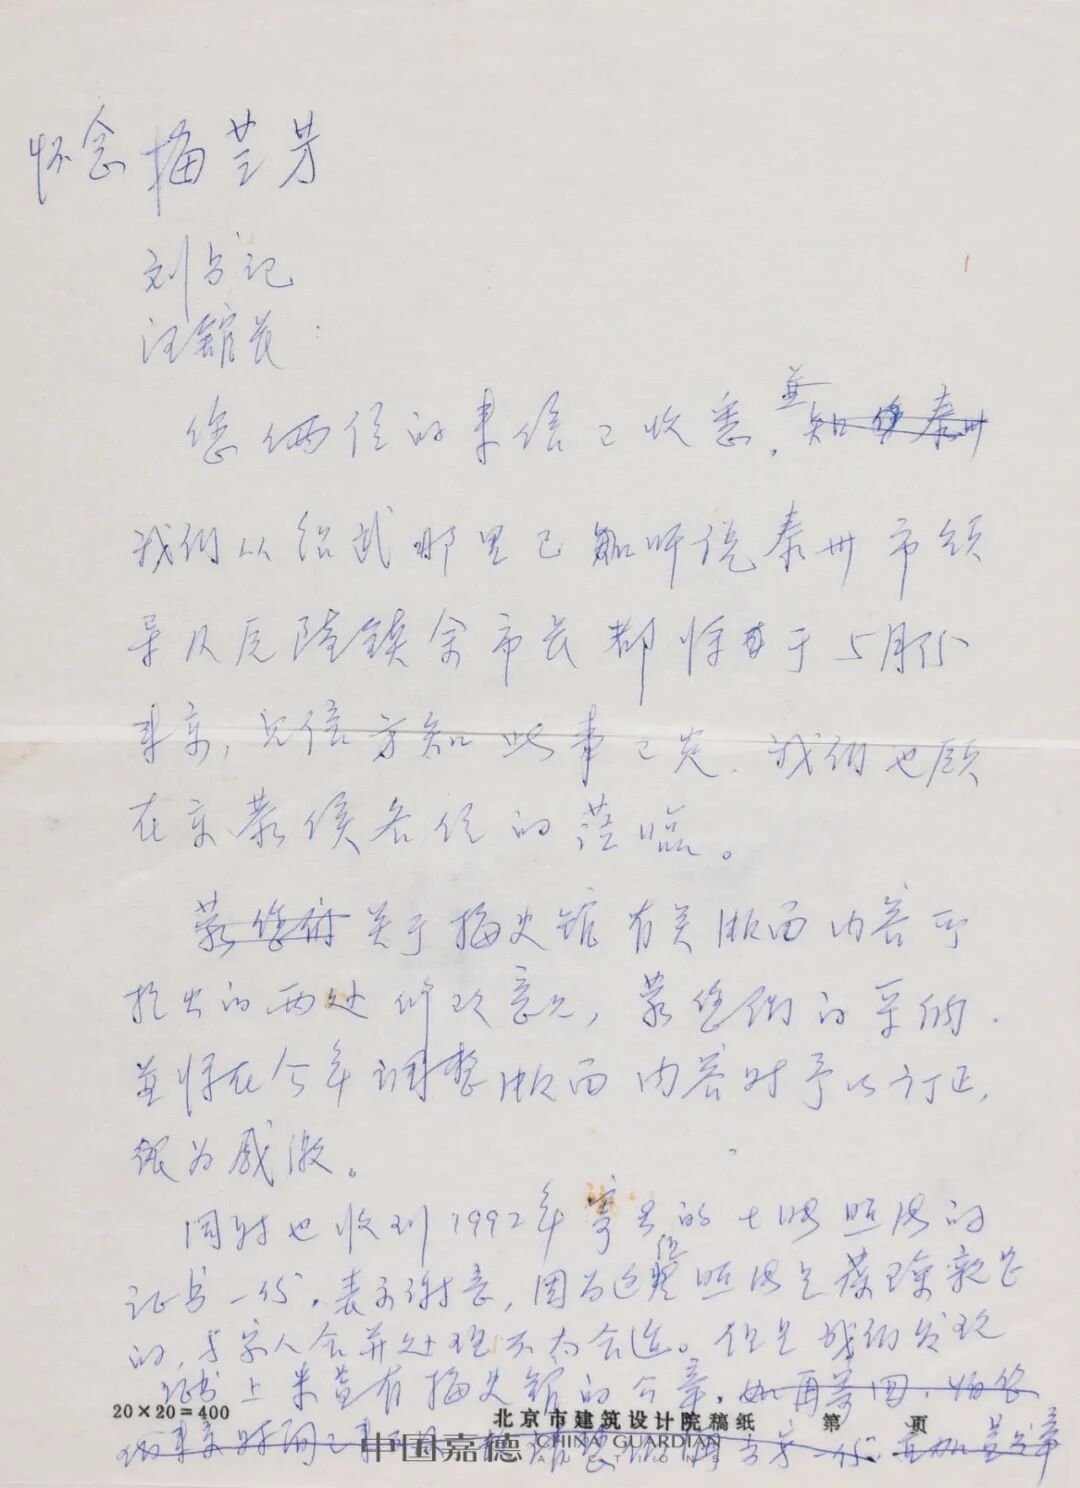 怀念梅兰芳
刘书记
汪馆长：
您俩位的来信已收悉，並知你泰州
我们从绍武那里已知听说泰州市领
导及 市长都将于5月份
来京，见信方知此事已定，我们也愿
在京恭候各位的莅临。
蒙您俩关于梅史馆有关版面内容所
提出的两处修改意见，蒙您俩的采纳，
並将在今年调整版面内容时予以订正，
很为感激。
同时也收到1992年寄去的七张照片的
证书一份，表示谢意，因为这些照片是
的，与家人合并处理不太合适。但是我们发现
证书上未盖有梅史馆的公章，如再寄回，怕您
20×20=400 北京市建筑设计院稿纸 第 页
中国嘉德 CHINA GUARDIAN AUCTIONS